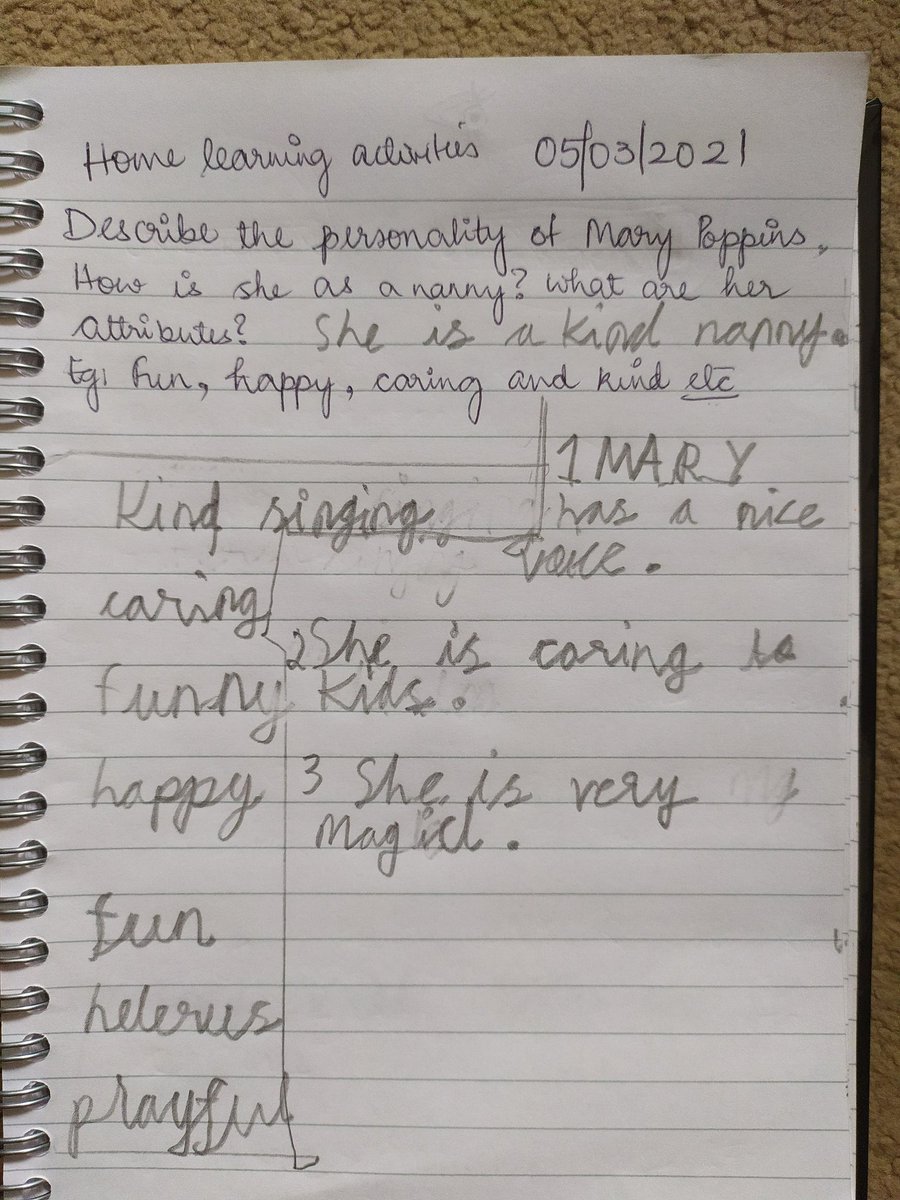 Home learning activities 05/03/2021
Describe the personality of Mary Poppins.
How is she as a nanny? What are her
attributes? She is a kind nanny.
Eg: fun, happy, caring and kind etc
1 MARY
kind singing has a nice
voice.
caring
2 She is caring to
funny kids.
happy 3 She is very
magicl.
fun
helerus
playful